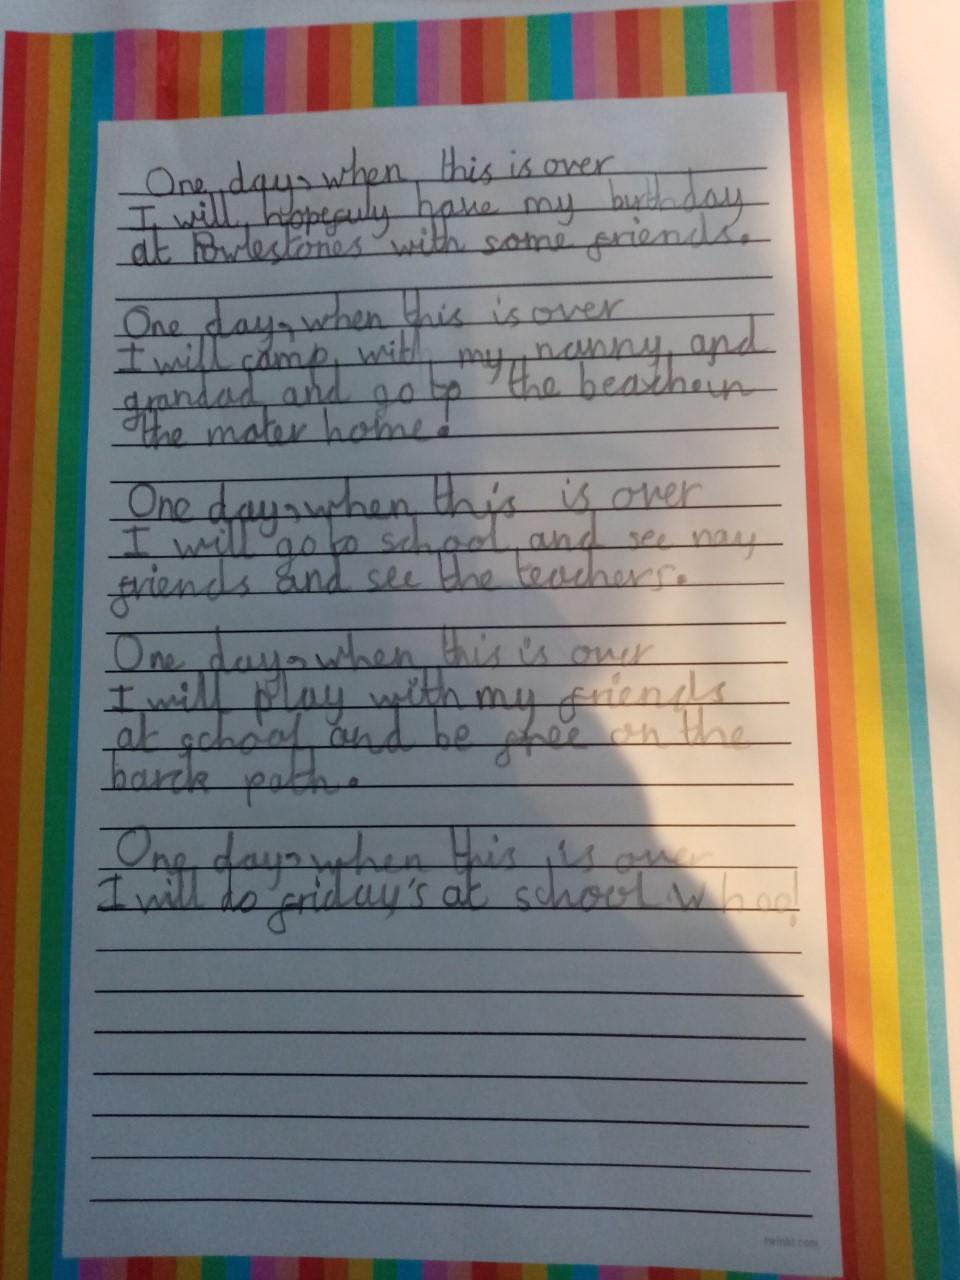 One day, when this is over
I will hopefuly have my birthday
at Powlestones with some friends.
One day, when this is over
I will camp with my nanny and
grandad and go to the beach in
the moter home.
One day, when this is over
I will go to school and see my
friends and see the teachers.
One day, when this is over
I will play with my friends
at school and be free on the
barck path.
One day, when this is over
I will do friday's at school whoo!
twinkl.com